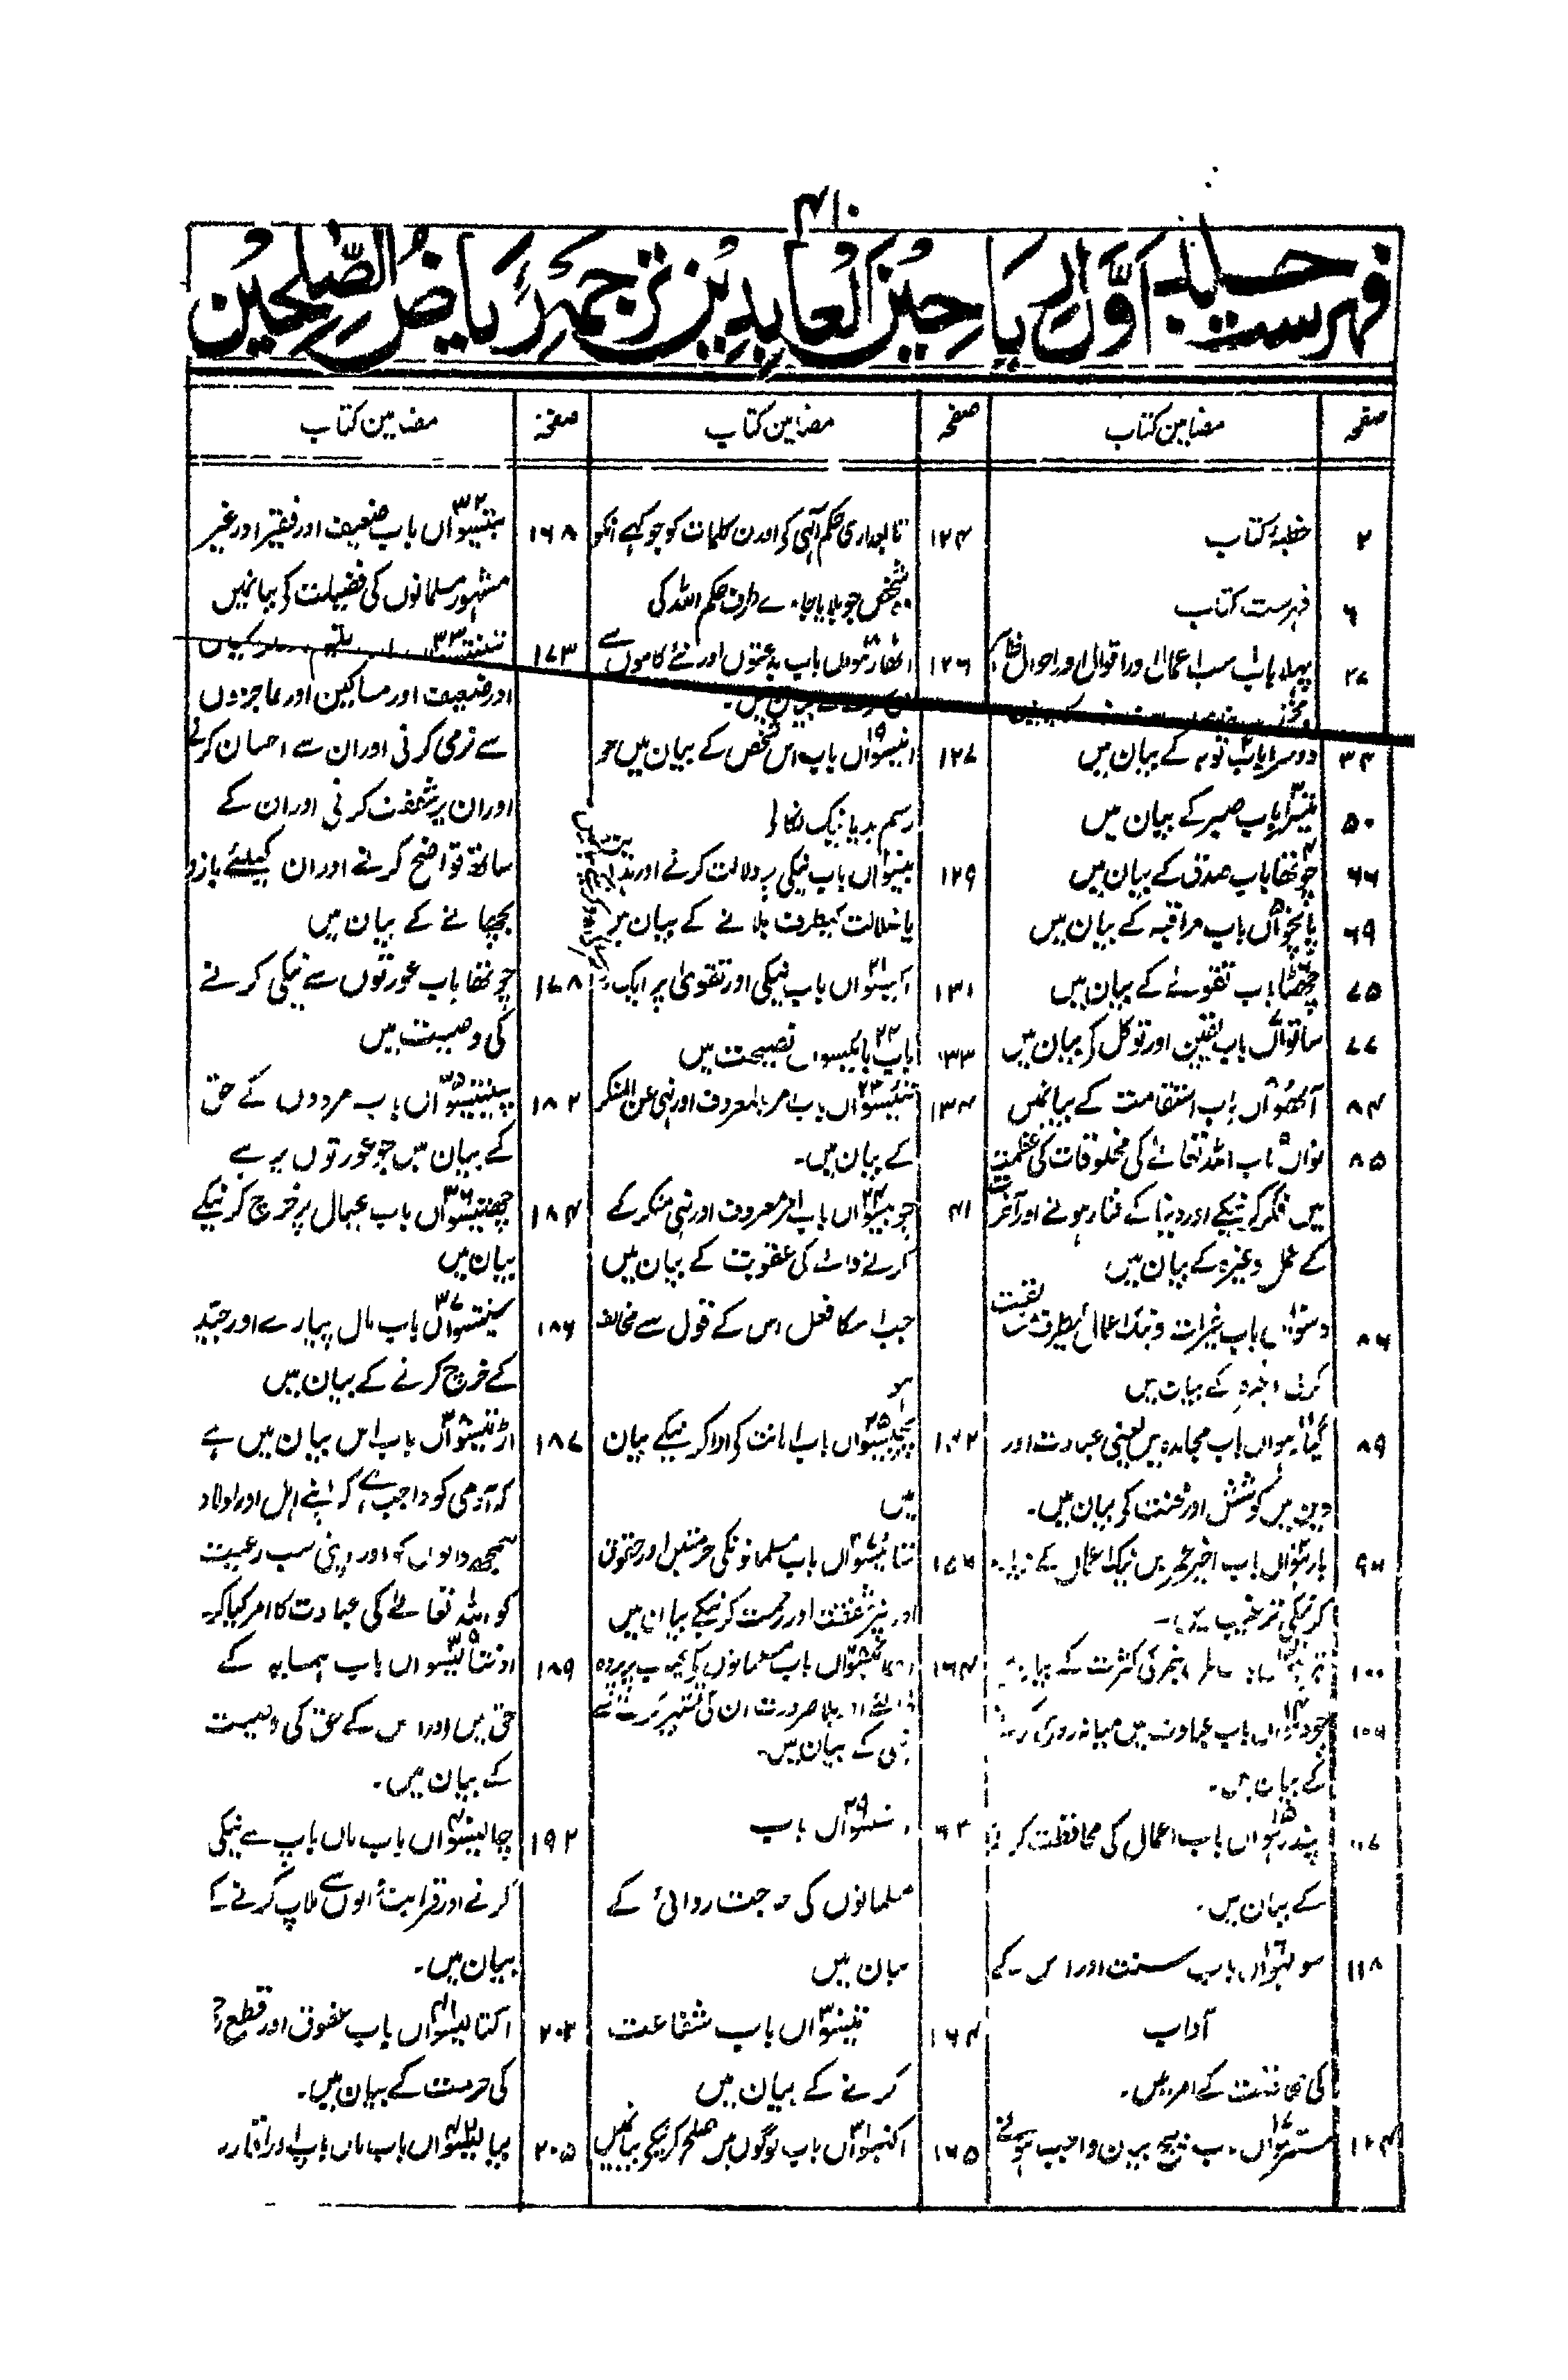 ۴۱۰
فہرست جلد اوّل ریاحین العابدین ترجمۂ ریاض الصّٰلحین
صفحہ مضامین کتاب
۲ خطبۂ کتاب
۶ فہرست کتاب
۲۷ پہلا باب سب اعمال اور اقوال اور احوال
۳۴ دوسرا باب توبہ کے بیان میں
۵۰ تیسرا باب صبر کے بیان میں
۶۶ چوتھا باب صدق کے بیان میں
۶۹ پانچواں باب مراقبہ کے بیان میں
۷۵ چھٹا باب تقوےٰ کے بیان میں
۷۷ ساتواں باب یقین اور توکل کے بیان میں
۸۴ آٹھواں باب استقامت کے بیانمیں
۸۵ نواں باب اللہ تعالےٰ کی مخلوقات کی عظمت
میں فکر کرنیکے اور دنیا کے فنا ہونے اور آخرت
کے عمل وغیرہ کے بیان میں
۸۶ دسواں باب خیرات و نیک اعمال کیطرف سبقت
کرنے وغیرہ کے بیان میں
۸۹ گیارہواں باب مجاہدہ میں یعنی عبادت اور
دین میں کوشش اور محنت کے بیان میں۔
۹۴ بارہواں باب اخیر عمر میں نیک اعمال کے زیادہ
کرنیکی ترغیب میں۔
۱۰۰ کثرت کے
۱۰۵ چودہواں باب عبادت میں میانہ روی
کے بیان میں۔
پندرہواں باب اعمال کی محافظت کرنے
کے بیان میں۔
۱۱۸ سولہواں باب سنت اور اس کے
آداب
کی محافظت کے امر میں۔
۱۲۴ سترہواں باب بیچ بیان واجب ہونے
صفحہ مضامین کتاب
۱۲۴ تابعداری حکم الٰہی کی اور ان کلمات کو جو کہے انکو
شخص جو بلایا جاوے طرف حکم اللہ کی
۱۲۶ اٹھارہواں باب بدعتوں اور نئے کاموں سے
۱۲۷ انیسواں باب اس شخص کے بیان میں جو
رسم بد یا نیک نکالے
۱۲۹ بیسواں باب نیکی پر دلالت کرنے اور
یا ضلالت کیطرف بلانے کے بیان میں
۱۳۱ اکیسواں باب نیکی اور تقویٰ پر
۱۳۳ باب بائیسواں نصیحت میں
۱۳۴ تئیسواں باب امر بالمعروف اور نہی عن المنکر
کے بیان میں۔
چوبیسواں باب امر معروف اور نہی منکر کے
کرنے والے کی عقوبت کے بیان میں
جب اسکا فعل اس کے قول سے مخالف
ہو
۱۴۲ پچیسواں باب امانت کی ادا کرنیکے بیان
میں
۱۵۴ ستائیسواں باب مسلمانونکی حرمتیں اور حقوق
اور نیز شفقت اور رحمت کرنیکے بیان میں
۱۶۴ اٹھائیسواں باب مسلمانوں کے عیوب پر پردہ
بلا ضرورت ان کی تشہیر
نہی کے بیان میں۔
انتیسواں باب
مسلمانوں کی حاجت روائی کے
بیان میں
۱۶۴ تیسواں باب شفاعت
کرنے کے بیان میں
۱۶۵ اکتیسواں باب لوگوں میں صلح کرنیکے بیانمیں
صفحہ مضامین کتاب
۱۶۸ بتیسواں باب ضعیف اور فقیر اور غیر
مشہور مسلمانوں کی فضیلت کے بیانمیں
۱۷۳
اور ضعیف اور مساکین اور عاجزوں
سے نرمی کرنی اور ان سے احسان کرنے
اور ان پر شفقت کرنی اور ان کے
ساتھ تواضع کرنے اور ان کیلئے بازو
بچھانے کے بیان میں
۱۷۸ چونتھا باب عورتوں سے نیکی کرنے
کی وصیت میں
۱۸۲ پینتیسواں باب مردوں کے حق
کے بیان میں جو عورتوں پر ہے
۱۸۴ چھتیسواں باب عیال پر خرچ کرنیکے
بیان میں
۱۸۶ سینتیسواں باب مال پیارے اور جیّد
کے خرچ کرنے کے بیان میں
۱۸۷ اڑتیسواں باب اس بیان میں ہے
کہ آدمی کو واجب ہے کہ اپنے اہل اور اولاد
سمجھ والوں کو اور اپنی سب رعیت
کو اللہ تعالےٰ کی عبادت کا امر کیا کرے
۱۸۹ اونتالیسواں باب ہمسایہ کے
حق میں اور اس کے حق کی وصیت
کے بیان میں۔
۱۹۲ چالیسواں باب ماں باپ سے نیکی
کرنے اور قرابت والوں سے ملاپ کرنے کے
بیان میں۔
۲۰۲ اکتالیسواں باب عقوق اور قطع رحم
کی حرمت کے بیان میں۔
۲۰۵ بیالیسواں باب ماں باپ اور اقارب